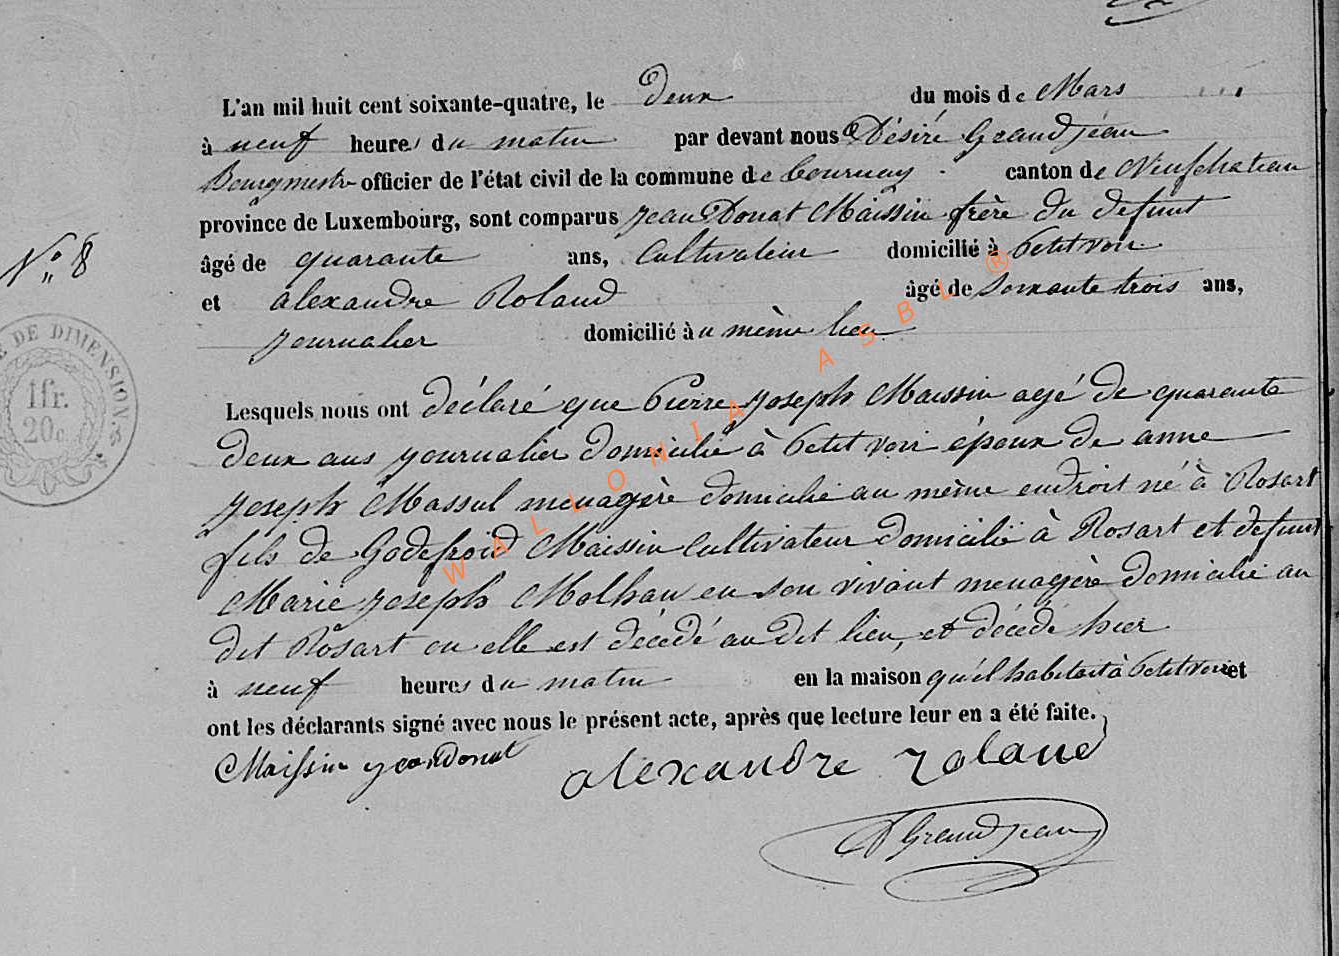 L'an mil huit cent soixante-quatre, le deux du mois de Mars
à neuf heures du matin par devant nous Désiré Grandjean
Bourgmestre officier de l'état civil de la commune de Tournay canton de Neufchateau
province de Luxembourg, sont comparus Jean Donat Maissin frère du defunt
âgé de quarante ans, Cultivateur domicilié à Petitvoir
N° 8
et alexandre Roland âgé de soixante trois ans,
journalier domicilié au même lieu
E DE DIMENSION
1fr.
20c.
Lesquels nous ont déclaré que Pierre Joseph Maissin agé de quarante
deux ans journalier domicilié à Petit voir époux de anne
joseph Massul menagère domicilié au même endroit né à Rosart
fils de Godefroid Maissin Cultivateur domicilié à Rosart et defunt
Marie joseph Molhan en son vivant menagère domicilié au
dit Rosart ou elle est décédé au dit lieu, et décédé hier
à neuf heures du matin en la maison qu'el habitait à Petitvoir et
ont les déclarants signé avec nous le présent acte, après que lecture leur en a été faite.
Maissin jean Donat alexandre roland
D Grandjean
WALLONIA ASBL ®